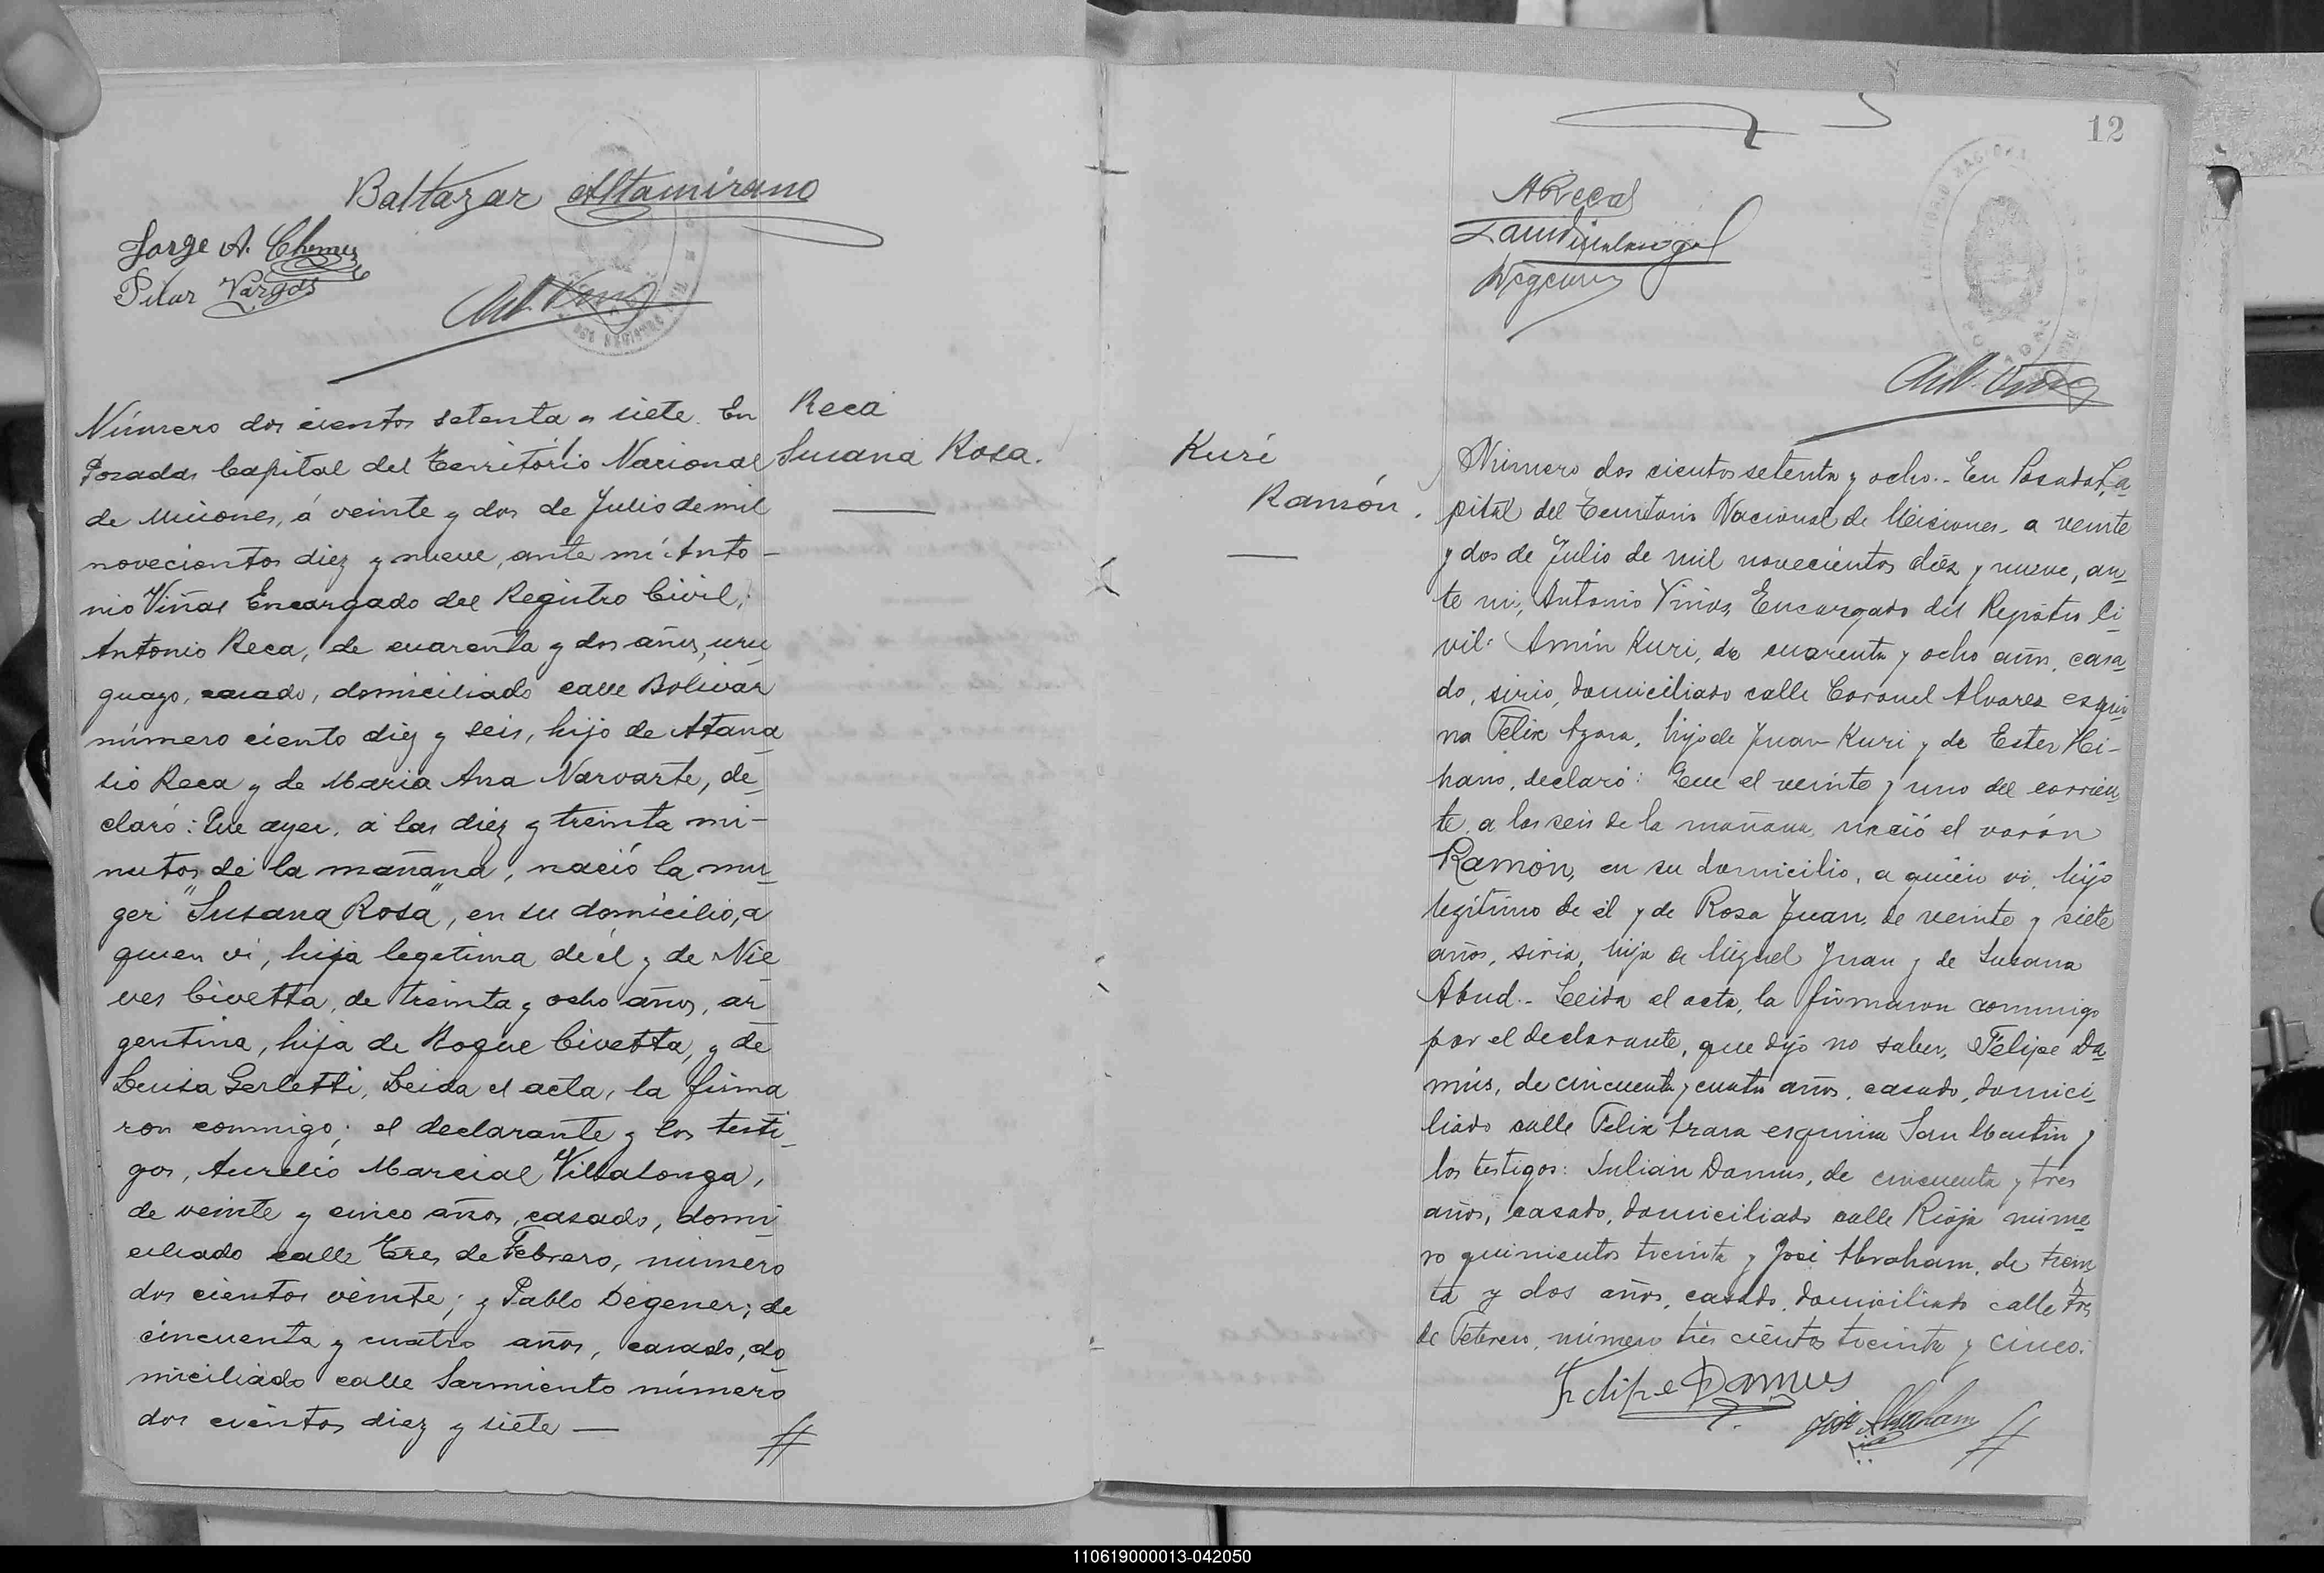 Baltazar Altamirano
Jorge A. Chemes
Pilar Vargas
Número dos cientos setenta y siete. En
Posadas Capital del Território Nacional
de Misiones, á veinte y dos de Julio de mil
novecientos diez y nueve, ante mí Anto-
nio Viñas Encargado del Registro Civil;
Antonio Reca, de cuarenta y dos años, uru
guayo, casado, domiciliado calle Bolivar
número ciento diez y seis, hijo de Atana
sio Reca y de Maria Ana Narvarte, de
claró: Que ayer, á las diez y treinta mi-
nutos de la mañana, nació la mu
ger "Susana Rosa", en su domicilio, a
quien vi, hija legitima de él y de Nie
ves Civetta, de treinta y ocho años, ar
gentina, hija de Roque Civetta, y de
Luisa Gerletti, Leida el acta, la firma
ron conmigo; el declarante y los testi
gos, Aurelio Marcial Villalonga,
de veinte y cinco años, casado, domi
ciliado calle Tres de Febrero, número
dos cientos veinte; y Pablo Degener; de
cincuenta y cuatro años, casado, do
miciliado calle Sarmiento número
dos cientos diez y siete —
Reca
Susana Rosa.
12
AReca
Kuri
Ramón.
Número dos cientos setenta y ocho.- En Posadas, Ca
pital del Territorio Nacional de Misiones, a veinte
y dos de Julio de mil novecientos diez y nueve, an
te mi, Antonio Viñas, Encargado del Registro Ci
vil: Amín Kuri, de cuarenta y ocho años, casa
do, sirio, domiciliado calle Coronel Alvarez esqui
na Félix Azara, hijo de Juan Kuri y de Ester Mi-
hans, declaró: Que el veinte y uno del corrien
te, a las seis de la mañana, nació el varón
Ramón, en su domicilio, a quién vi, hijo
legítimo de él y de Rosa Juan, de veinte y siete
años, siria, hija de Miguel Juan y de Susana
Abud.- Leida el acta, la firmaron conmigo
por el declarante, que dijo no saber, Felipe Da
mús, de cincuenta y cuatro años, casado, domici
liado calle Felix Azara esquina San Martin y
los testigos: Julián Damus, de cincuenta y tres
años, casado, domiciliado calle Rioja núme
ro quinientos treinta y José Abraham, de trein
ta y dos años, casado, domiciliado calle tres
de Febrero, número tres cientos treinta y cinco.
Felipe Damus
José Abraham
110619000013-042050